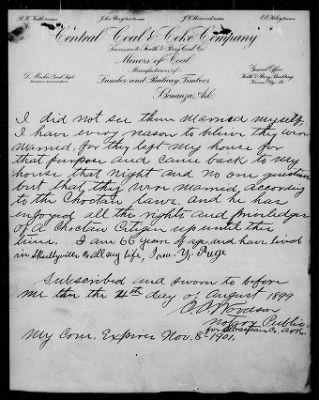 Central Coal & Coke Company
Successor to Keith & Perry Coal Co.
Miners of Coal
Manufacturers of
Lumber and Railway Timbers
General Office
Keith & Perry Building
Kansas City, Mo.
Bonanza, Ark.
I did not see them married myself,
I have every reason to bleive they wer
married, for they left my house for
that purpose and came back to my
house that night and no one questions
but that they wer married according
to the Choctaw laws, and he has
enjoyed all the rights and
of a Choctaw Citizen up until this
time. I am 66 years of age, and have lived
in Skullyville all my life,
Subscribed and sworn to before
me this the 4th day of August 1899
Notary Public
for Sebastian Co. Ark.
My Com. Expires Nov. 8-1901.